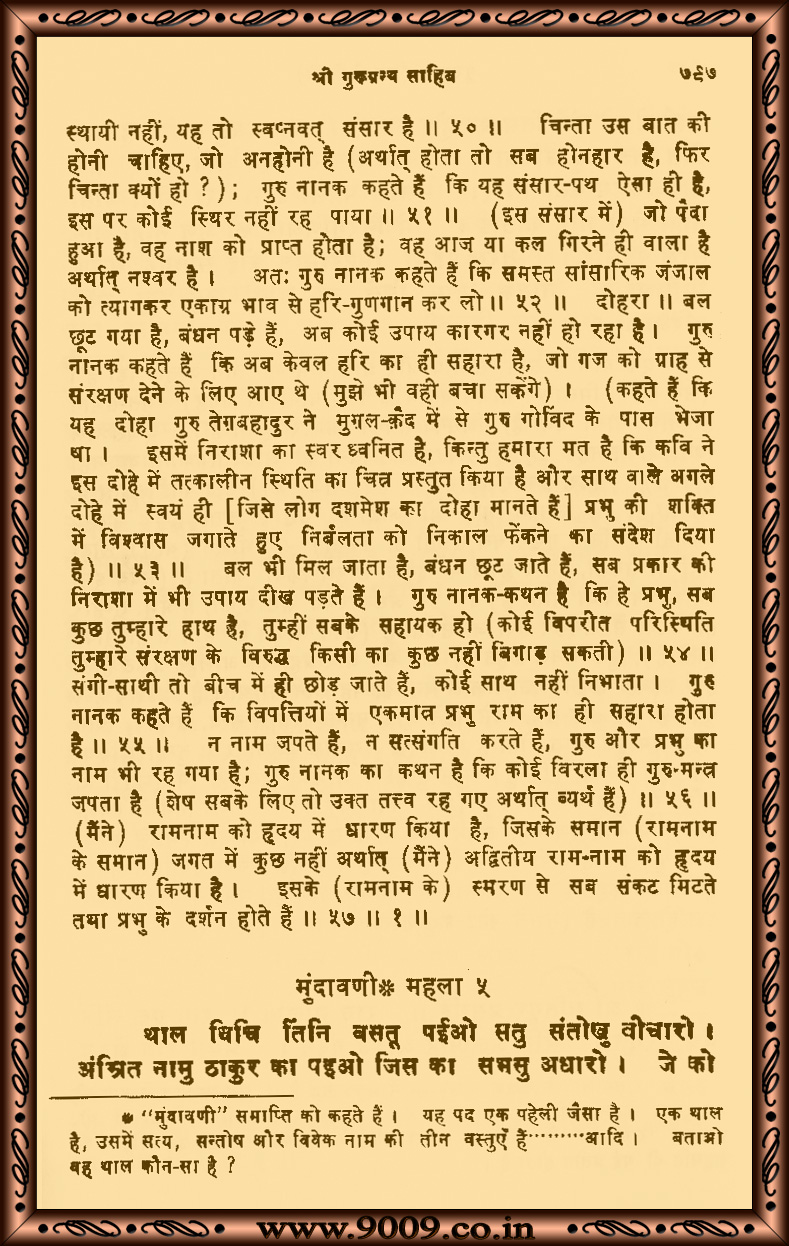 श्री गुरुग्रन्थ साहिब ७९७
स्थायी नहीं, यह तो स्वप्नवत् संसार है ॥ ५० ॥ चिन्ता उस बात की
होनी चाहिए, जो अनहोनी है (अर्थात् होता तो सब होनहार है, फिर
चिन्ता क्यों हो ?); गुरु नानक कहते हैं कि यह संसार-पथ ऐसा ही है,
इस पर कोई स्थिर नहीं रह पाया ॥ ५१ ॥ (इस संसार में) जो पैदा
हुआ है, वह नाश को प्राप्त होता है; वह आज या कल गिरने ही वाला है
अर्थात् नश्वर है । अतः गुरु नानक कहते हैं कि समस्त सांसारिक जंजाल
को त्यागकर एकाग्र भाव से हरि-गुणगान कर लो ॥ ५२ ॥ दोहरा ॥ बल
छूट गया है, बंधन पड़े हैं, अब कोई उपाय कारगर नहीं हो रहा है । गुरु
नानक कहते हैं कि अब केवल हरि का ही सहारा है, जो गज को ग्राह से
संरक्षण देने के लिए आए थे (मुझे भी वही बचा सकेंगे) । (कहते हैं कि
यह दोहा गुरु तेग़बहादुर ने मुग़ल-क़ैद में से गुरु गोविंद के पास भेजा
था । इसमें निराशा का स्वर ध्वनित है, किन्तु हमारा मत है कि कवि ने
इस दोहे में तत्कालीन स्थिति का चित्र प्रस्तुत किया है और साथ वाले अगले
दोहे में स्वयं ही [जिसे लोग दशमेश का दोहा मानते हैं] प्रभु की शक्ति
में विश्वास जगाते हुए निर्बलता को निकाल फेंकने का संदेश दिया
है) ॥ ५३ ॥ बल भी मिल जाता है, बंधन छूट जाते हैं, सब प्रकार की
निराशा में भी उपाय दीख पड़ते हैं । गुरु नानक-कथन है कि हे प्रभु, सब
कुछ तुम्हारे हाथ है, तुम्हीं सबके सहायक हो (कोई विपरीत परिस्थिति
तुम्हारे संरक्षण के विरुद्ध किसी का कुछ नहीं बिगाड़ सकती) ॥ ५४ ॥
संगी-साथी तो बीच में ही छोड़ जाते हैं, कोई साथ नहीं निभाता । गुरु
नानक कहते हैं कि विपत्तियों में एकमात्र प्रभु राम का ही सहारा होता
है ॥ ५५ ॥ न नाम जपते हैं, न सत्संगति करते हैं, गुरु और प्रभु का
नाम भी रह गया है; गुरु नानक का कथन है कि कोई विरला ही गुरु-मन्त्र
जपता है (शेष सबके लिए तो उक्त तत्त्व रह गए अर्थात् व्यर्थ हैं) ॥ ५६ ॥
(मैंने) रामनाम को हृदय में धारण किया है, जिसके समान (रामनाम
के समान) जगत में कुछ नहीं अर्थात् (मैंने) अद्वितीय राम-नाम को हृदय
में धारण किया है । इसके (रामनाम के) स्मरण से सब संकट मिटते
तथा प्रभु के दर्शन होते हैं ॥ ५७ ॥ १ ॥
मुंदावणी* महला ५
थाल विचि तिंनि वसतू पईओ सतु संतोखु वीचारो ।
अंम्रित नामु ठाकुर का पइओ जिस का सभसु अधारो । जे को
* “मुंदावणी” समाप्ति को कहते हैं । यह पद एक पहेली जैसा है । एक थाल
है, उसमें सत्य, सन्तोष और विवेक नाम की तीन वस्तुएँ हैं·········आदि । बताओ
वह थाल कौन-सा है ?
www.9009.co.in